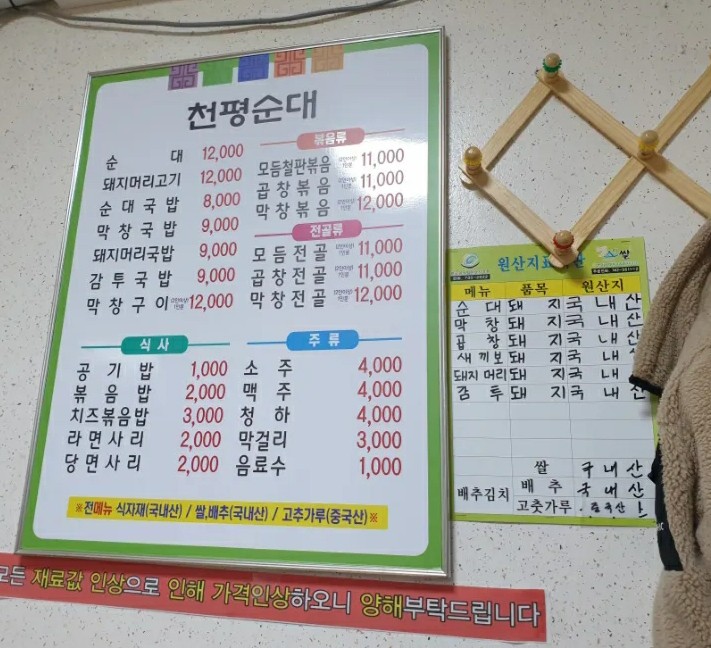 천평순대
순대 12,000
돼지머리고기 12,000
순대국밥 8,000
막창국밥 9,000
돼지머리국밥 9,000
감투국밥 9,000
막창구이 12,000
볶음류
모듬철판볶음 11,000
곱창볶음 11,000
막창볶음 12,000
전골류
모듬전골 11,000
곱창전골 11,000
막창전골 12,000
식사
공기밥 1,000
볶음밥 2,000
치즈볶음밥 3,000
라면사리 2,000
당면사리 2,000
주류
소주 4,000
맥주 4,000
청하 4,000
막걸리 3,000
음료수 1,000
※전메뉴 식자재(국내산) / 쌀,배추(국내산) / 고추가루(중국산)※
모든 재료값 인상으로 인해 가격인상하오니 양해부탁드립니다
원산지표
쌀
메뉴 품목 원산지
순대 돼지 국내산
막창 돼지 국내산
곱창 돼지 국내산
새끼보 돼지 국내산
돼지머리 돼지 국내산
감투 돼지 국내산
쌀 국내산
배추김치 배추 국내산
고춧가루 중국산